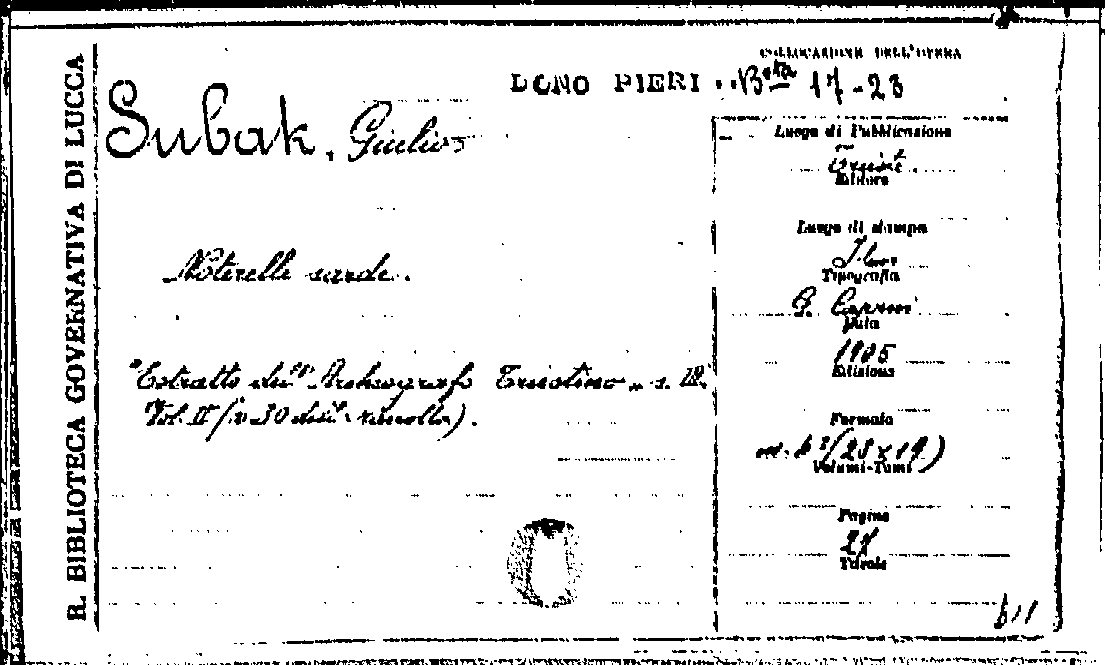 R. BIBLIOTECA GOVERNATIVA DI LUCCA
COLLOCAZIONE DELL'OPERA
DONO PIERI .. Bsta 17-23
Subak, Giulio
Noterelle sarde.
"Estratto dall'Archeografo Triestino" s. III.
Vol. II (v. 30 della raccolta).
Luogo di Pubblicazione
Trieste
Editore
Luogo di stampa
Tipografia
G. Caprin
Data
1905
Edizione
Formato
(28 x 19)
Volumi-Tomi
Pagine
27
Tavole